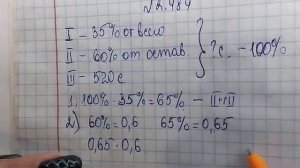 № 2.484
I – 35% от всего
II – 60% от остав
III – 520 с
?с. – 100%
1. 100% 35% = 65% – II + III
2) 60% = 0,6 65% = 0,65
0,65 · 0,6